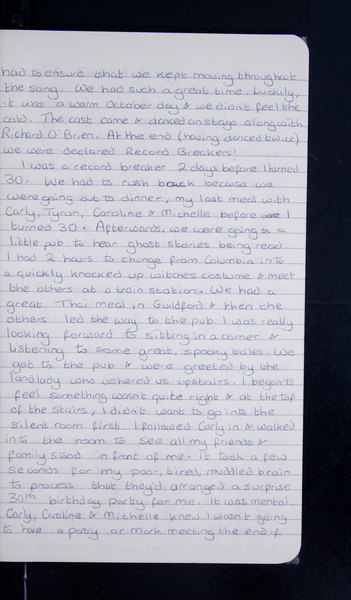 had to ensure that we kept moving throughout
the song. We had such a great time. Luckily,
it was a warm October day & we didn't feel the
cold. The cast came & danced on stage along with
Richard O'Brien. At the end (having danced twice)
we were declared Record Breakers!
I was a record breaker 2 days before I turned
30. We had to rush back because we
were going out to dinner, my last meal with
Carly, Tyron, Caroline & Michelle before I
turned 30. Afterwards, we were going to a
little pub to hear ghost stories being read.
I had 2 hours to change from Columbia into
a quickly knocked up witches costume & meet
the others at a train station. We had a
great Thai meal in Guildford & then the
others led the way to the pub. I was really
looking forward to sitting in a corner &
listening to some great, spooky tales. We
got to the pub & were greeted by the
landlady who ushered us upstairs. I began to
feel something wasn't quite right & at the top
of the stairs, I didn't want to go into the
silent room first. I followed Carly in & walked
into the room to see all my friends &
family stood in front of me. It took a few
seconds for my poor, tired, muddled brain
to process that they'd arranged a surprise
30th birthday party for me. It was mental.
Carly, Caroline & Michelle knew I wasn't going
to have a party or mark meeting the end of